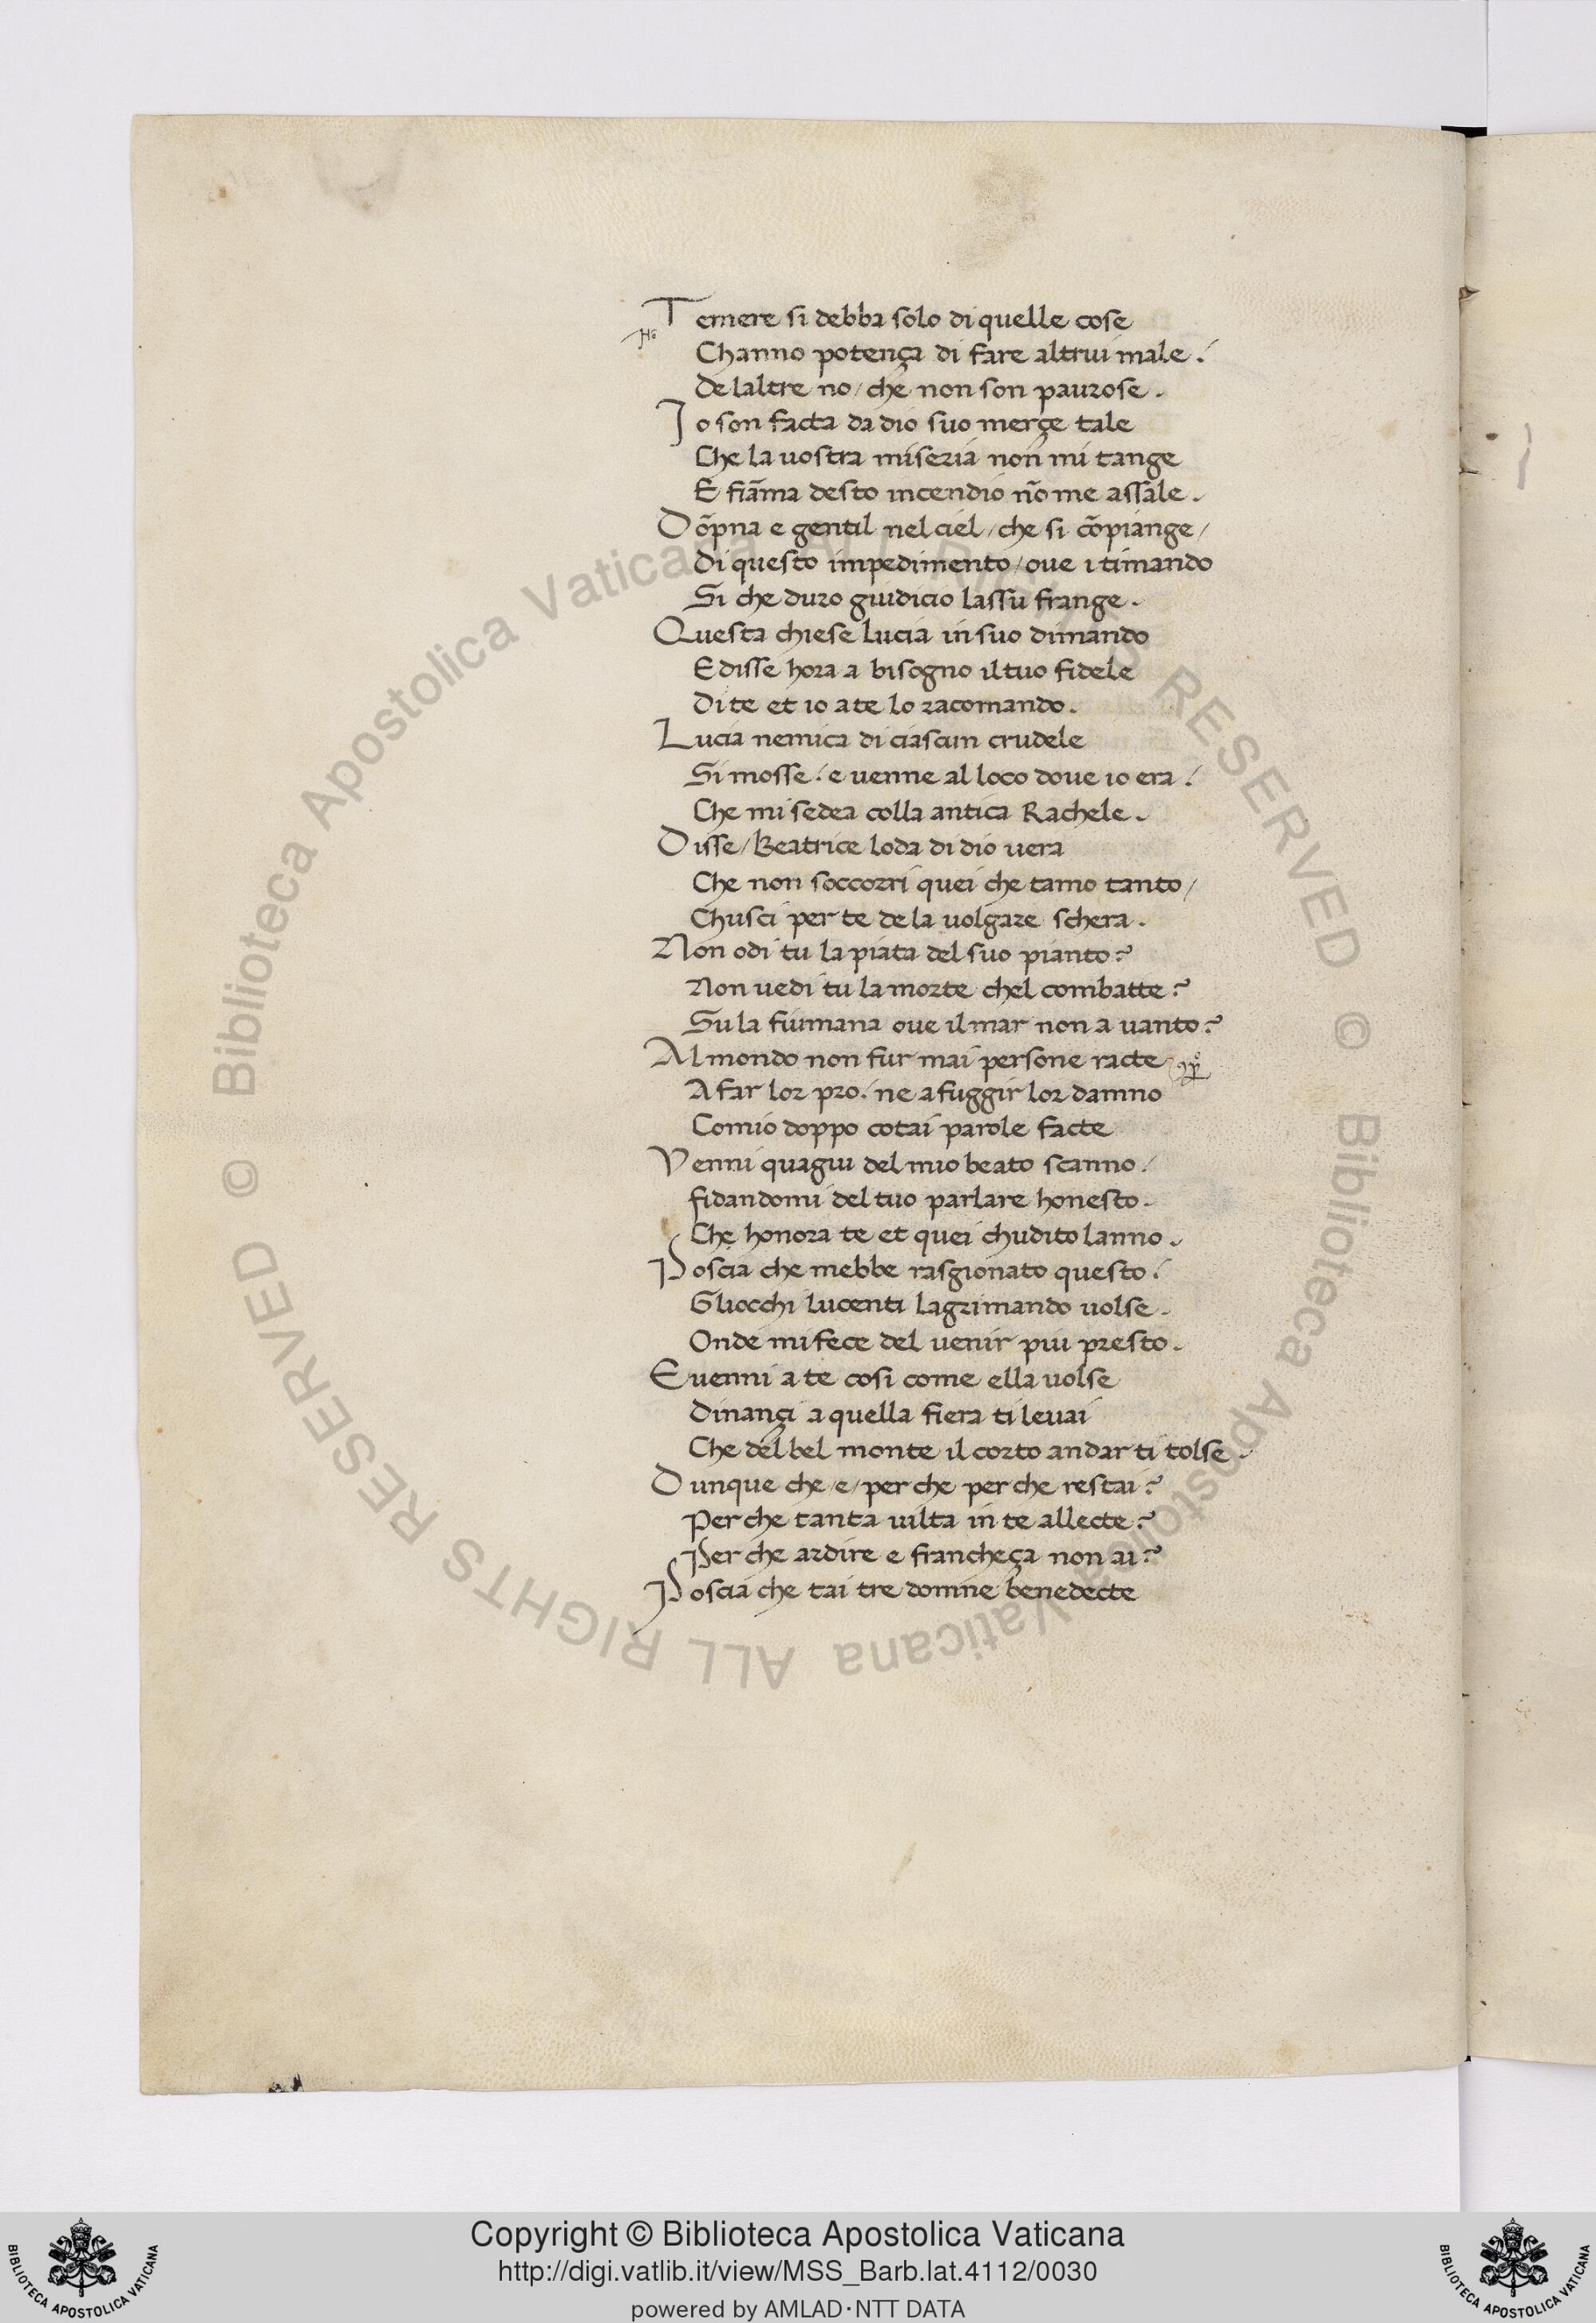 Temere si debba solo di quelle cose
No
Channo potença di fare altrui male :
De laltre no / che non son paurose .
Io son facta da dio suo merçe tale
Che la vostra miseria non mi tange
E fiãma desto incendio nõ me assale .
Dõpna e gentil nel ciel / che si cõpiange /
Di questo impedimento / ove i timando
Si che duro giudicio lassu frange .
Questa chiese lucia in suo dimando
E disse hora a bisogno il tuo fidele
Di te et io a te lo racomando .
Lucia nemica di ciascun crudele
Si mosse : e venne al loco dove io era :
Che mi sedea colla antica Rachele .
Disse / Beatrice loda di dio vera
Che non soccorri quei che tamo tanto /
Chusci per te de la volgare schera .
Non odi tu la piata del suo pianto ?
Non vedi tu la morte chel combatte ?
Su la fiumana ove il mar non a vanto ?
Al mondo non fur mai persone racte
A far lor pro : ne a fuggir lor damno
Comio doppo cotai parole facte
Venni quagiu del mio beato scanno :
fidandomi del tuo parlare honesto .
Che honora te et quei chudito lanno .
Poscia che mebbe rasgionato questo :
Gliocchi lucenti lagrimando volse .
Onde mi fece del venir piu presto .
E venni a te cosi come ella volse
Dinançi a quella fiera ti levai
Che del bel monte il corto andar ti tolse .
Dunque che / e / per che per che restai ?
Per che tanta vilta in te allecte ?
Per che ardire e francheça non ai ?
Poscia che tai tre donne benedecte
© Biblioteca Apostolica Vaticana ALL RIGHTS RESERVED © Biblioteca Apostolica Vaticana ALL RIGHTS RESERVED
Copyright © Biblioteca Apostolica Vaticana
http://digi.vatlib.it/view/MSS_Barb.lat.4112/0030
powered by AMLAD·NTT DATA
BIBLIOTECA APOSTOLICA VATICANA
BIBLIOTECA APOSTOLICA VATICANA